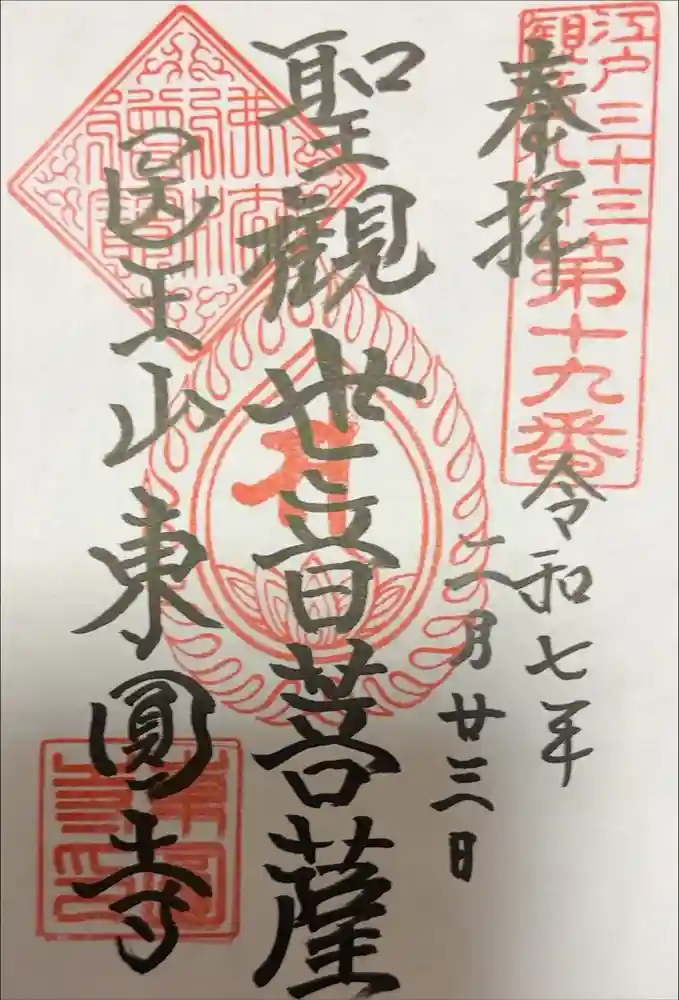 江戸三十三
観音札所
第十九番
奉拝
令和七年
二月廿三日
聖観世音菩薩
医王山東圓寺